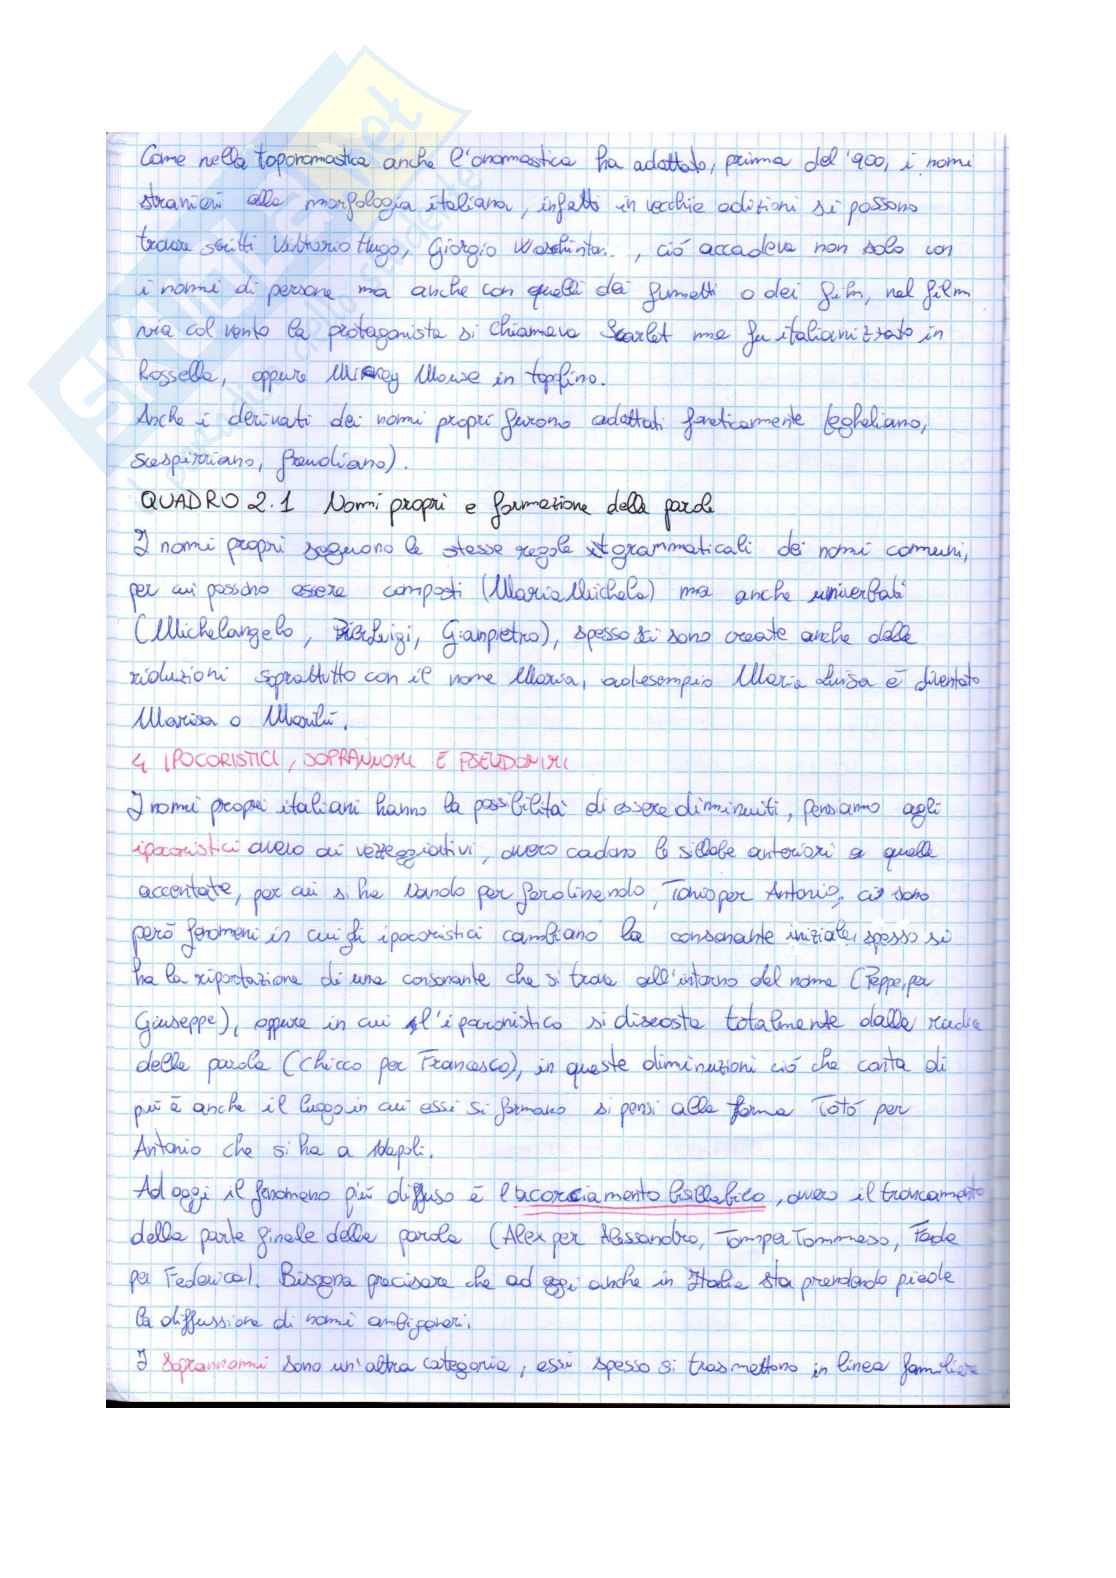 SKUOLA.net
Come nella toponomastica anche l'onomastica ha adattato, prima del '900, i nomi
stranieri alla morfologia italiana, infatti in vecchie edizioni si possono
trovare scritti Vittorio Hugo, Giorgio Waschinton.., ciò accadeva non solo con
i nomi di persone ma anche con quelli dei fumetti o dei film, nel film
via col vento la protagonista si chiamava Scarlet ma fu italianizzato in
Rossella, oppure Mickey Mouse in topolino.
Anche i derivati dei nomi propri furono adattati foneticamente (egheliano,
scespirriano, freudiano).
QUADRO 2.1 Nomi propri e formazione delle parole
I nomi propri seguono le stesse regole grammaticali dei nomi comuni,
per cui possono essere composti (Maria Michela) ma anche univerbati
(Michelangelo, PierLuigi, Gianpietro), spesso si sono create anche delle
riduzioni soprattutto con il nome Maria, ad esempio Maria Luisa è diventato
Marisa o Marilù.
4 IPOCORISTICI, SOPRANNOMI E PSEUDONIMI
I nomi propri italiani hanno la possibilità di essere diminuiti, pensiamo agli
ipocoristici ovvero ai vezzeggiativi, ovvero cadono le sillabe anteriori a quelle
accentate, per cui si ha Nando per Ferdinando, Tonio per Antonio, ci sono
però fenomeni in cui gli ipocoristici cambiano la consonante iniziale, spesso si
ha la riportazione di una consonante che si trova all'interno del nome (Peppe per
Giuseppe), oppure in cui l'ipocoristico si discosta totalmente dalla radice
della parola (Chicco per Francesco), in queste diminuzioni ciò che conta di
più è anche il luogo in cui essi si formano si pensi alla forma Totò per
Antonio che si ha a Napoli.
Ad oggi il fenomeno più diffuso è l'accorciamento bisillabico, ovvero il troncamento
della parte finale della parola (Alex per Alessandro, Tom per Tommaso, Fede
per Federica). Bisogna precisare che ad oggi anche in Italia sta prendendo piede
la diffussione di nomi ambigeneri.
I Soprannomi sono un'altra categoria, essi spesso si trasmettono in linea familiare